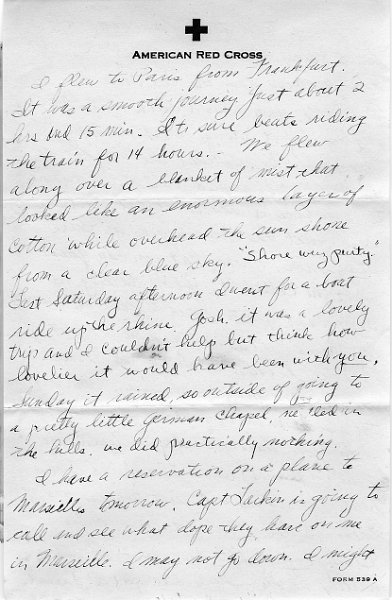 AMERICAN RED CROSS
I flew to Paris from Frankfurt.
It was a smooth journey just about 2
hrs and 15 min. It sure beats riding
the train for 14 hours. We flew
along over a blanket of mist that
looked like an enormous layer of
cotton while overhead the sun shone
from a clear blue sky. "Shore wuz purty."
Last Saturday afternoon I went for a boat
ride up the Rhine. Gosh, it was a lovely
trip and I couldn't help but think how
lovelier it would have been with you.
Sunday it rained, so outside of going to
a pretty little German chapel, nestled in
the hills, we did practically nothing.
I have a reservation on a plane to
Marseilles tomorrow. Capt Larkin is going to
call and see what dope they have on me
in Marseille. I may not go down. I might
FORM 539 A